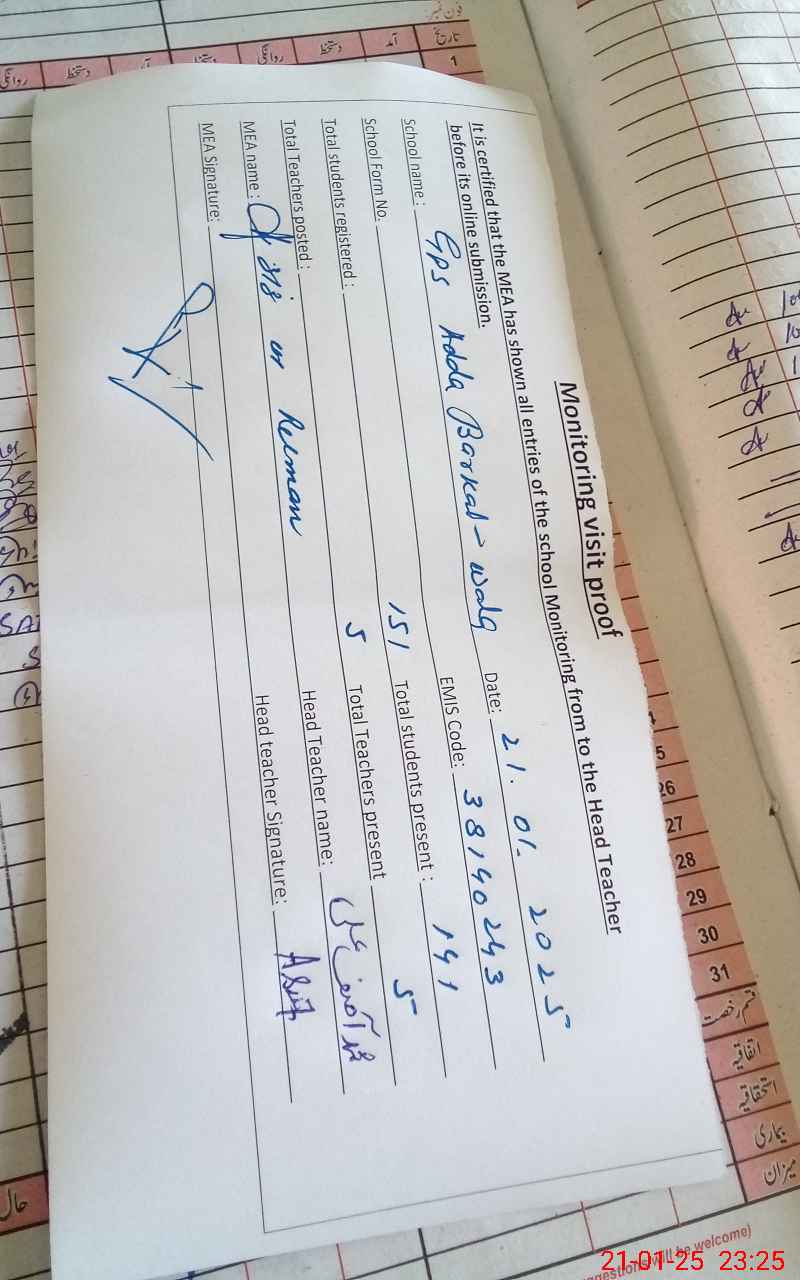 Monitoring visit proof
It is certified that the MEA has shown all entries of the school Monitoring from to the Head Teacher
before its online submission.
Date: 21. 01. 2025
School name : GPS Adda Barkat - wala EMIS Code: 38140243
School Form No. Total students present : 141
Total students registered : 151 Total Teachers present 5
Total Teachers posted : 5 Head Teacher name: محمد آصف علی
MEA name : Reeman Head teacher Signature: Asif
MEA Signature:
فون نمبر:
تاریخ آمد دستخط روانگی دستخط
1
5
26
27
28
29
30
31
قسم رخصت
اتفاقیہ
استحقاقیہ
بیماری
میزان
حال
will be welcome)
21-01-25 23:25